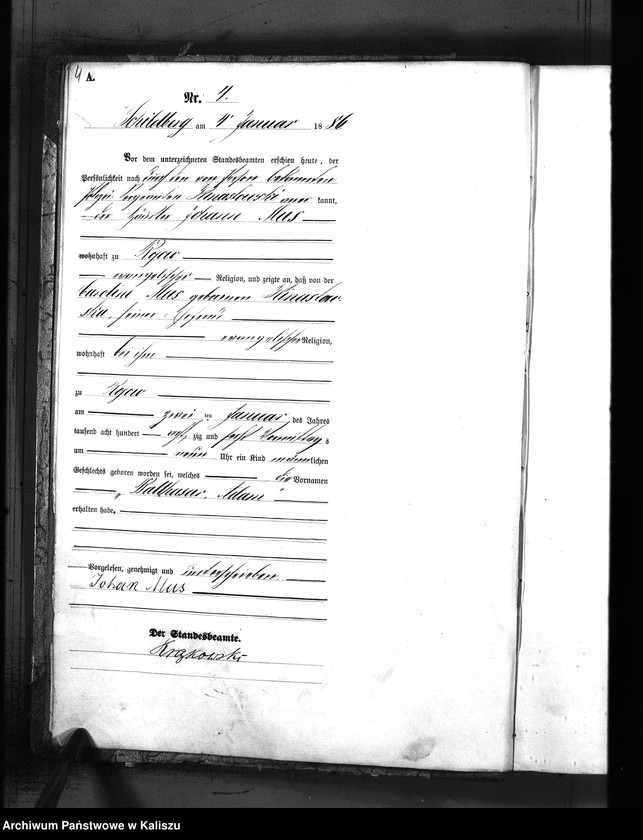 4 A.
Nr. 4.
Schildberg am 4 Januar 18 86.
Vor dem unterzeichneten Standesbeamten erschien heute, der
Persönlichkeit nach durch den von Person bekannten
kannt,
der Häusler Johann Mus
wohnhaft zu Rgow
evangelischer Religion, und zeigte an, daß von der
Mus geborenen
seiner Ehefrau
evangelischer Religion,
wohnhaft bei ihm
zu Rgow
am zwei ten Januar des Jahres
tausend acht hundert acht zig und sechs Vormittag s
um neun Uhr ein Kind männlichen
Geschlechts geboren worden sei, welches die Vornamen
„Balthasar, Adam"
erhalten habe.
Vorgelesen, genehmigt und unterschrieben
Johan Mus
Der Standesbeamte.
Krąkowski
Archiwum Państwowe w Kaliszu